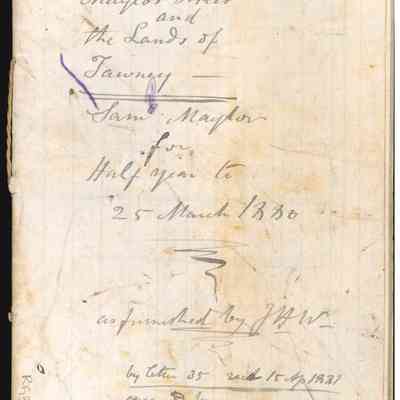 Maylor Street
and
the Lands of
Tawney —
Saml Maylor
for
Half year to
25 March 1880
as furnished by JHW
by letter 35 recd 15 Ap 1881